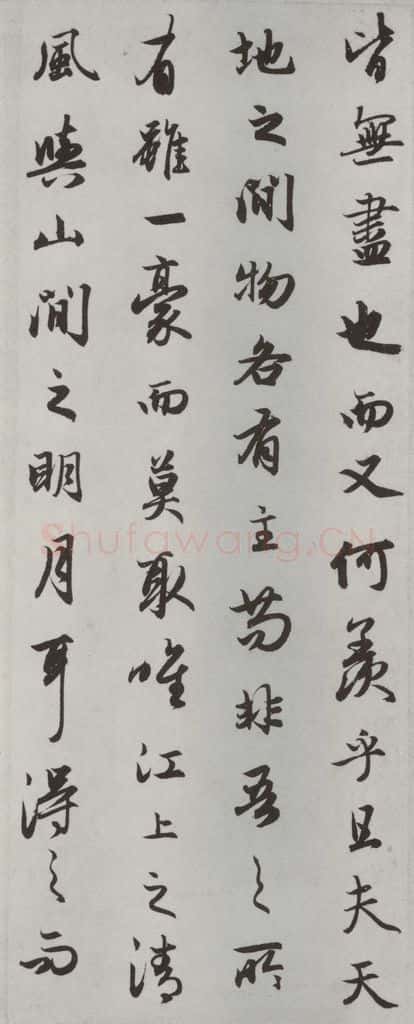 皆無盡也而又何羨乎且夫天
地之間物各有主苟非吾之所
有雖一豪而莫取唯江上之清
風與山間之明月耳得之而
Shufawang.CN